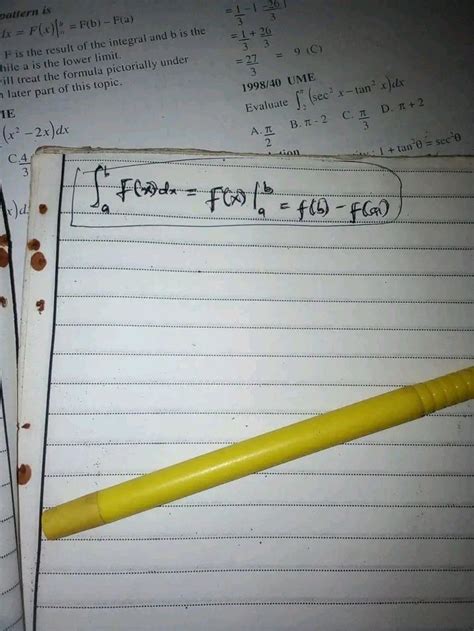 pattern is
dx = F(x)|ᵇₐ = F(b) – F(a)
F is the result of the integral and b is the
while a is the lower limit.
will treat the formula pictorially under
later part of this topic.
(x² – 2x)dx
C. 4/3
x)d
= 1/3 + 26/3
= 27/3 = 9 (C)
1998/40 UME
Evaluate (sec² x – tan² x)dx
A. π/2 B. π – 2 C. π/3 D. π + 2
1 + tan²θ = sec²θ
∫ᵇₐ f(x)dx = F(x)|ᵇₐ = f(b) – f(a)